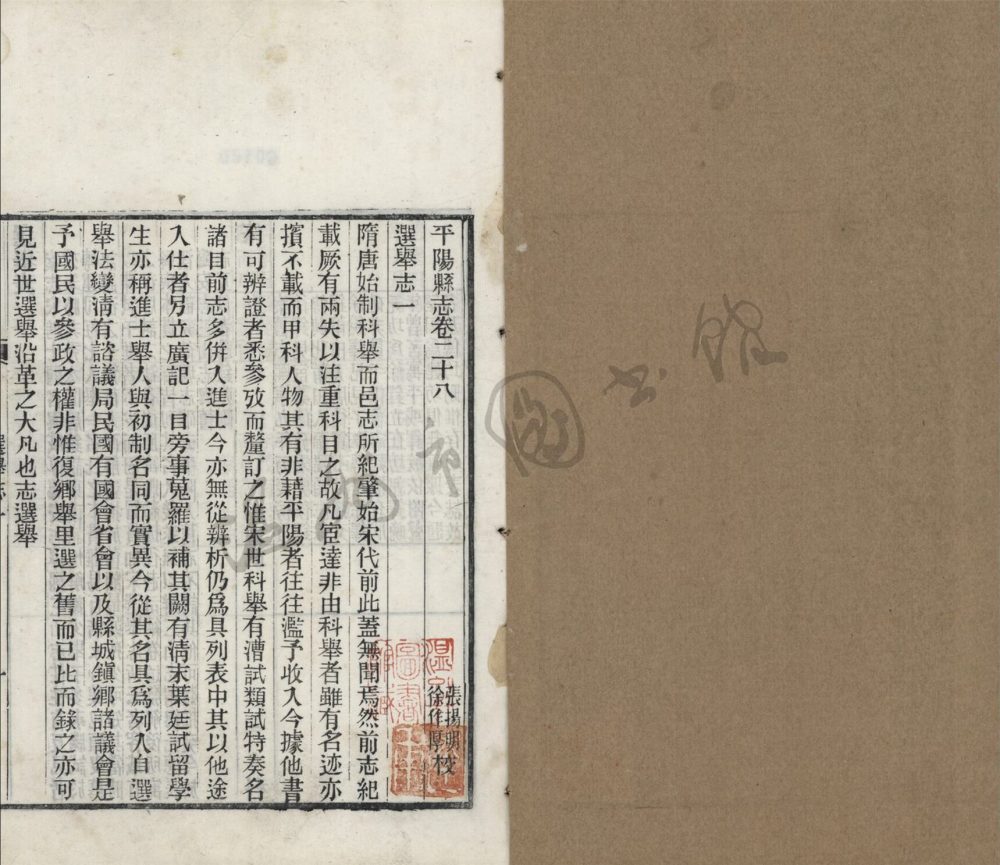 平陽縣志卷二十八
張揚明
徐作學校
選舉志一
隋唐始制科舉而邑志所紀肇始宋代前此蓋無聞焉然前志紀
載厥有兩失以注重科目之故凡宦達非由科舉者雖有名迹亦
擯不載而甲科人物其有非藉平陽者往往濫予收入今據他書
有可辨證者悉參攷而釐訂之惟宋世科舉有漕試類試特奏名
諸目前志多併入進士今亦無從辨析仍爲具列表中其以他途
入仕者另立廣記一目旁事蒐羅以補其闕有淸末葉廷試留學
生亦稱進士舉人與初制名同而實異今從其名具爲列入自選
舉法變淸有諮議局民國有國會省會以及縣城鎭鄉諸議會是
予國民以參政之權非惟復鄉舉里選之舊而已比而錄之亦可
見近世選舉沿革之大凡也志選舉
選舉志一
溫州市圖书館